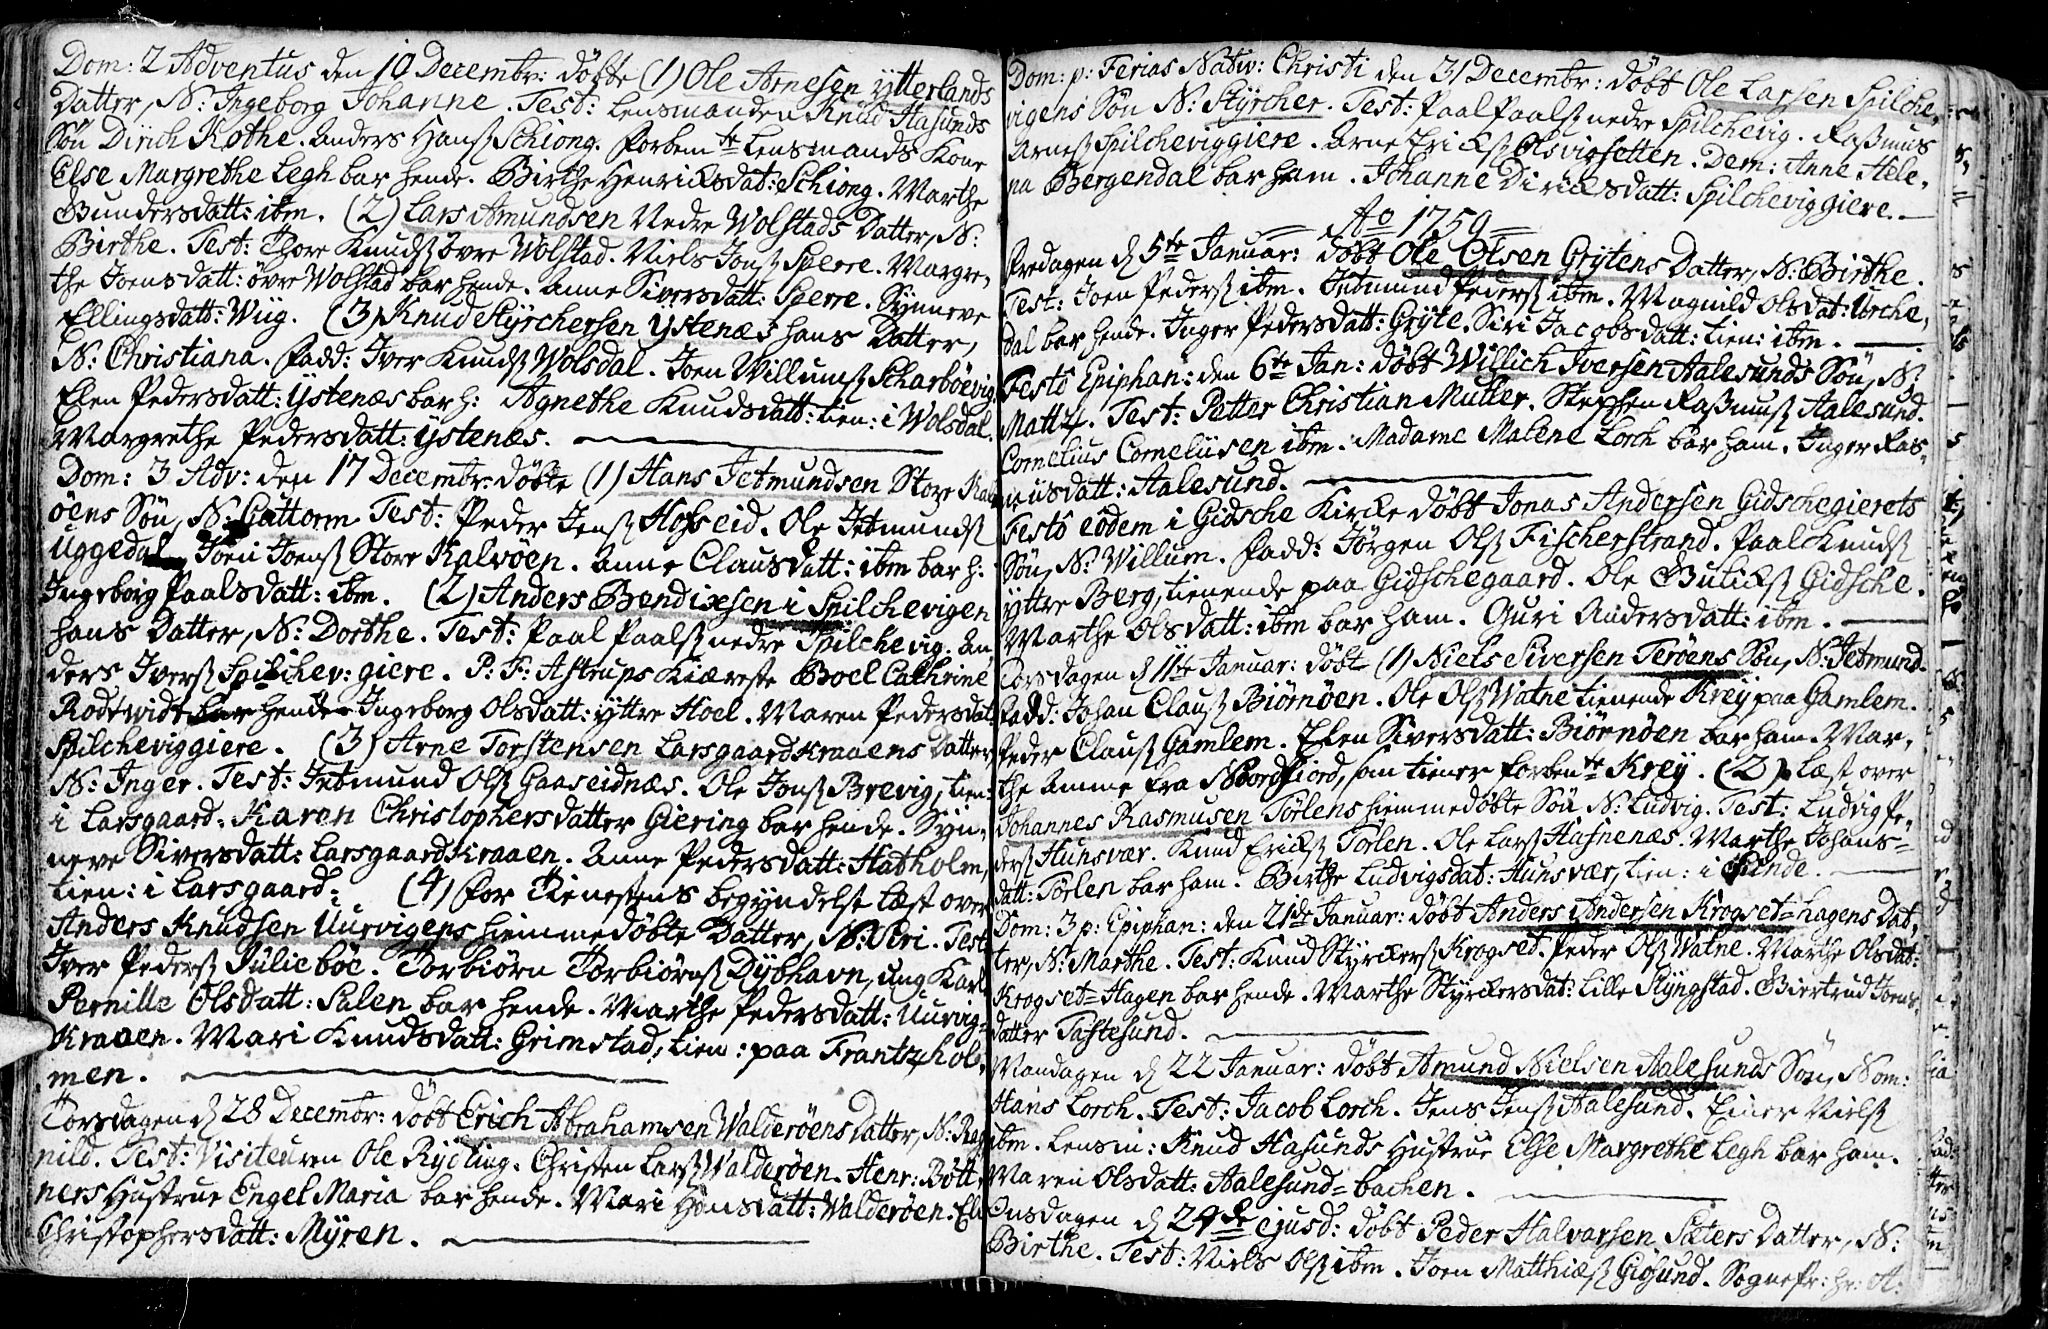 Dom: 2 Adventus den 10 Decembr: döbte (1) Ole Arnesen ytterlands
Datter, N: Ingeborg Johanne. Test: Lensmanden Knud Hasunds
Sön Dirich Kothe. Anders Hanss Schiong. Forbemte Lensmands Kone
Else Margrethe Legh bar hende. Birthe Henricksdat: Schiong. Marthe
Gundersdatt: ibm. (2) Lars Amundsen Nedre Wolstads Datter, N:
Birthe. Test: Thore Knudss övre Wolstad. Niels Jonss Sperre. Margre,
the Joensdatt: övre Wolstad bar hende. Anne Siversdatt: Sperre. Synneve
Ellingsdatt: Wiig. (3) Knud Styrchersen ystenæs hans Datter,
N: Christiana. Fadd: Iver Knudss Wolsdal. Joen Willumss Scharbövig
Elen Pedersdatt: ystenæs bar h: Agnethe Knudsdatt: tien: i Wolsdal.
Margrethe Pedersdatt: ystenæs.
Dom: 3 Adv: den 17 Decembr: döbte (1) Hans Jetmundsen Store Kal
öens Sön, N: Guttorm Test: Peder Jenss Hofseid. Ole Jetmundss
Uggedal Joen Joenss Store Kalvöen. Anne Clausdatt: ibm bar h:
Ingeborg Paalsdatt: ibm. (2) Anders Bendixsen i Spilchevigen
hans Datter, N: Dorthe. Test: Paal Paalss nedre Spilchevig. An
ders Iverss Spilchev: giere. P: F: Astrups Kiæreste Boel Cathrine
Rodtwidt bar hende Ingeborg Olsdatt: yttre Hoel. Maren Pedersdat:
Spilcheviggiere. (3) Arne Torstensen Larsgaard Kraaens Datter
N: Inger. Test: Jetmund Olss Gaaseidnæs. Ole Jonss Brevig, tien:
i Larsgaard. Karen Christophersdatter Giering bar hende. Syn,
neve Siversdatt: Larsgaard Kraaen. Anne Pedersdatt: Hatholm,
tien: i Larsgaard: (4) for Tienestens begyndelse læst over
Anders Knudsen Uurvigens hiemmedöbte Datter, N: Siri. Test:
Iver Pederss Julieböe. Torbiörn Torbiörnss Dybhavn, ung Karl.
Pernille Olsdatt: Salen bar hende. Marthe Pedersdatt: Uurvig=
Kraaen. Mari Knudsdatt: Grimstad, tien: paa Frantzhol,
men.
Torsdagen d 28 Decembr: döbt Erich Abrahamsen Walderöens Datter, N: Rag
nild. Test: Visiteuren Ole Rydling. Christen Larss Walderöen. Henr: Bött
ners Hustrue Engel Maria bar hende. Mari Hansdatt: Walderöen. Eli
Christophersdatt: Myren.
Dom: p: Ferias Nativ: Christi den 31 Decembr: döbt Ole Larsen Spilche,
vigens Sön N: Styrcher. Test: Paal Paalss nedre Spilchevig. Rasmus
Arness Spilcheviggiere. Arne Erickss Olsvigsetten. Dem: Anne Hele,
na Bergendal bar ham. Johanne Diricksdatt: Spilcheviggiere.
Ao 1759
Fredagen d 5te Januar: döbt Ole Olsen Grytens Datter, N: Birthe.
Test: Joen Pederss ibm. Jetmund Pederss ibm. Magnild Olsdat: Urche,
dal bar hende. Inger Pedersdatt: Gryte. Siri Jacobsdatt: tien: ibm.
Festo Epiphan: den 6te Jan: döbt Willich Iversen Aalesunds Sön, N:
Mattz. Test: Petter Christian Muller. Stephen Rasmuss Aalesund.
Cornelius Corneliusen ibm. Madame Malene Lorch bar ham. Inger Ras,
musdatt: Aalesund.
Festo eodem i Gidsche Kircke döbt Jonas Andersen Gidschegierets
Sön, N: Willum. Fadd: Jörgen Olss Fischerstrand. Paal Knudss
yttre Berg, tienende paa Gidschegaard. Ole Gulickss Gidsche.
Marthe Olsdatt: ibm bar ham. Guri Andersdatt: ibm.
Torsdagen d 11te Januar: döbt (1) Niels Siversen Teröens Sön, N: Jetmund.
Fadd: Johan Clauss Biörnöen. Ole Olss Watne tienende Krey paa Gamlem.
Peder Clauss Gamlem. Elen Siversdatt: Biörnöen bar ham. Mar,
the Amme fra Nordfiord, som tiener forbente Krey. (2) Læst over
Johannes Rasmusen Törlens hiemmedöbte Sön N: Ludvig. Test: Ludvig Pe,
derss Hunsvær. Knud Erickss Törlen. Ole Larss Hasnenæs. Marthe Johans=
datt: Törlen bar ham. Birthe Ludvigsdat: Hunsvær, tien: i Sunde.
Dom: 3 p: Epiphan: den 21de Januar: döbt Anders Andersen Krogset=hagens Dat,
ter, N: Marthe. Test: Knud Styrckerss Krogset. Peder Olss Watne. Marthe Olsdat:
Krogset=Hagen bar hende. Marthe Styrckersdat: Lille Slyngstad. Giertrud Joens
datter Taftesund.
Mandagen d 22 Januar: döbt Amund Nielsen Aalesunds Sön, Nom:
Hans Lorch. Test: Jacob Lorch. Jens Jenss Aalesund. Einer Nielss
ibm. Lensm: Knud Hasunds Hustrue Else Margrethe Legh bar ham.
Maren Olsdatt: Aalesund=bachen.
Onsdagen d 24de ejusd: döbt Peder Halvorsen Sæters Datter, N:
Birthe. Test: Niels Olss ibm. Joen Matthiæss Giosund. Sognepr: hr: A: